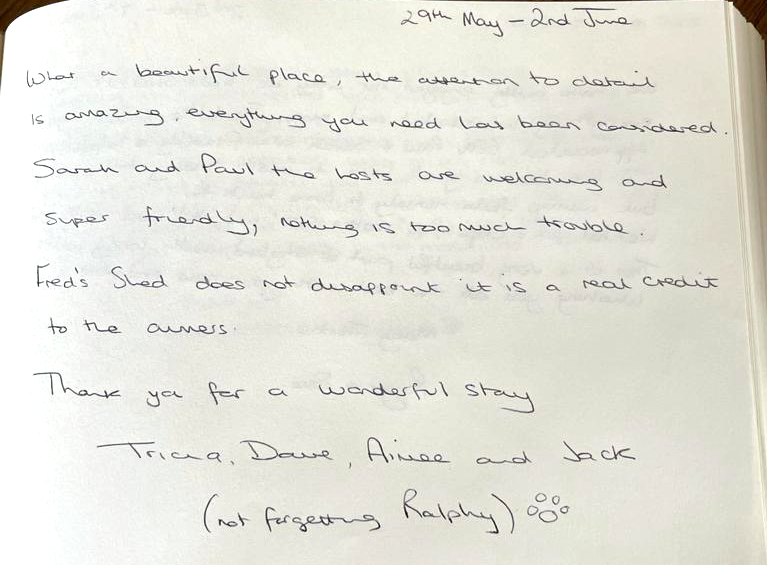 29th May - 2nd June
What a beautiful place, the attention to detail
is amazing, everything you need has been considered.
Sarah and Paul the hosts are welcoming and
super friendly, nothing is too much trouble.
Fred's Shed does not disappoint it is a real credit
to the owners.
Thank you for a wonderful stay
Tricia, Dave, Aimee and Jack
(not forgetting Ralphy)